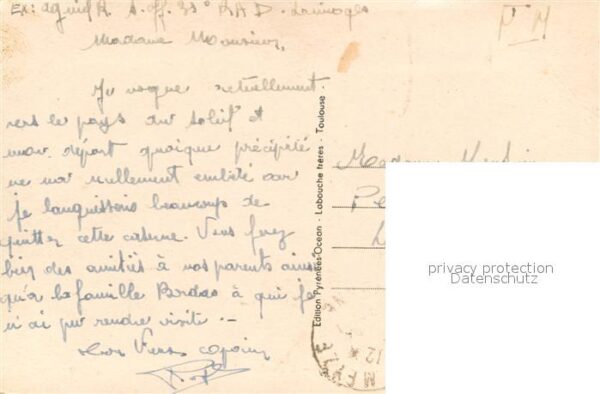 S. off. 35° R.A.D. Limoges
F M
Madame Monsieur,
Je vogue actuellement
vers le pays du soleil et
mon départ quoique précipité
ne m'a nullement embêté car
je languissais beaucoup de
quitter cette caserne. Vous ferez
bien des amitiés à vos parents ainsi
qu'à la famille Bordas à qui je
n'ai pu rendre visite. -
Votre Vieux copain
Edition Pyrénées-Océan - Labouche frères - Toulouse -
Madame
privacy protection
Datenschutz